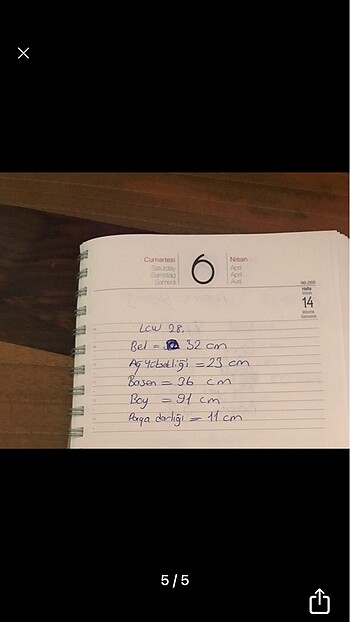 Cumartesi
Saturday
Samstag
Samedi
6
Nisan
April
April
Avril
Hafta
14
LCW 28.
Bel = 32 cm
Ağ yüksekliği = 23 cm
Basen = 36 cm
Boy = 91 cm
Paça darlığı = 11 cm
5/5